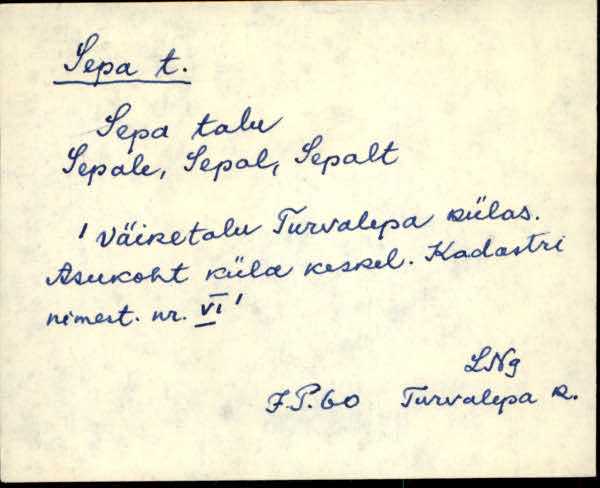 Sepa t.
Sepa talu
Sepale, Sepal, Sepalt
' Väiketalu Turvalepa külas.
Asukoht küla keskel. Kadastri
nimest. nr. VI '
LNg
J.P.60 Turvalepa k.